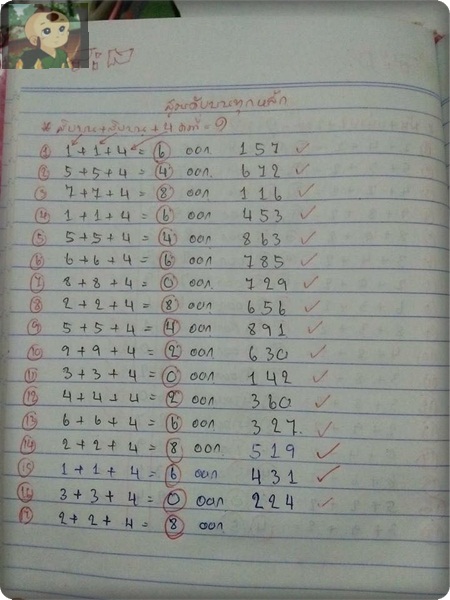 สูตรดับบนทุกหลัก
* สิบบน+สิบบน + 4 คงที่ = ?
1 1+1+4 = 6 ออก 157 ✓
2 5+5+4 = 4 ออก. 672 ✓
3 7+7+4 = 8 ออก 116 ✓
4 1+1+4 = 6 ออก 453 ✓
5 5+5+4 = 4 ออก 863 ✓
6 6+6+4 = 6 ออก 785 ✓
7 8+8+4 = 0 ออก. 729 ✓
8 2+2+4 = 8 ออก 656 ✓
9 5+5+4 = 4 ออก 891 ✓
10 9+9+4 = 2 ออก 630 ✓
11 3+3+4 = 0 ออก 142 ✓
12 4+4+4 = 2 ออก 360 ✓
13 6+6+4 = 6 ออก 327. ✓
14 2+2+4 = 8 ออก. 519 ✓
15 1+1+4 = 6 ออก 431 ✓
16 3+3+4 = 0 ออก 224 ✓
17 2+2+4 = 8 ออก